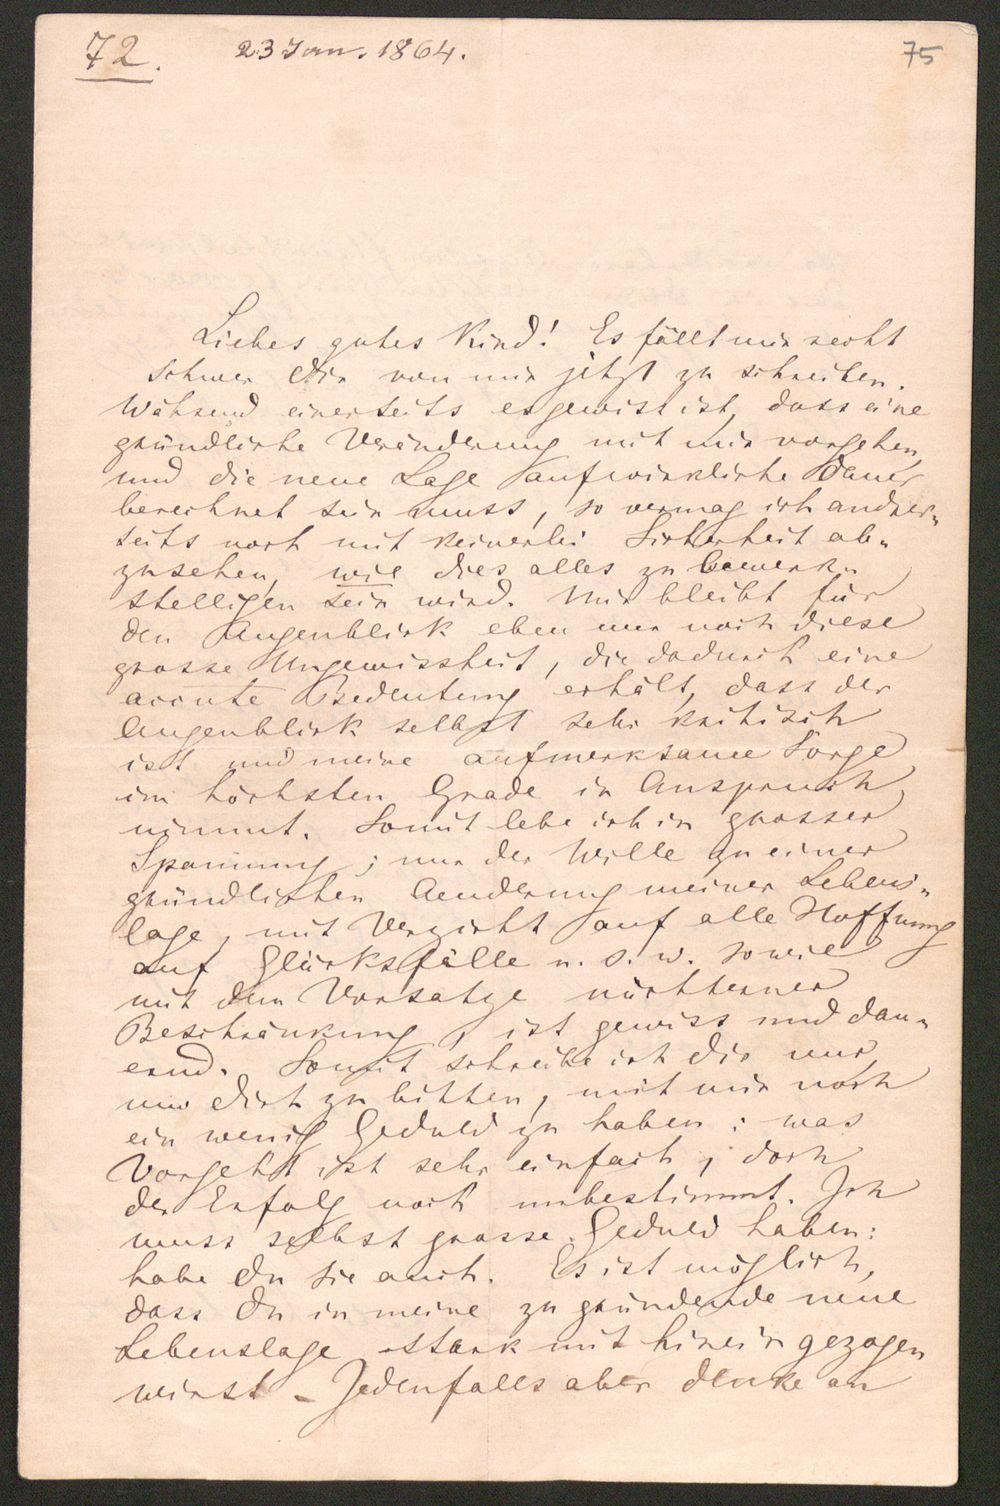 72. 23 Jan. 1864. 75
Liebes gutes Kind! Es fällt mir recht
schwer Dir von mir jetzt zu schreiben.
Während einerseits es gewiss ist, dass eine
gründliche Veränderung mit mir vorgehen,
und die neue Lage auf wirkliche Dauer
berechnet sein muss, so vermag ich andrer-
seits noch mit keinerlei Sicherheit ab-
zusehen, wie dies alles zu bewerk-
stelligen sein wird. Mir bleibt für
den Augenblick eben nur noch diese
grosse Ungewissheit, die dadurch eine
accute Bedeutung erhält, dass der
Augenblick selbst sehr kritisch
ist und meine aufmerksame Sorge
im höchsten Grade in Anspruch
nimmt. Somit lebe ich in grosser
Spannung; nur der Wille zu einer
gründlichen Aenderung meiner Lebens-
lage, mit Verzicht auf alle Hoffnung
auf Glücksfälle u. s. w. sowie
mit dem Vorsatze nüchterner
Beschränkung, ist gewiss und dau-
ernd. Somit schreibe ich Dir nur,
um Dich zu bitten, mit mir noch
ein wenig Geduld zu haben: was
vorgeht ist sehr einfach, doch
der Erfolg noch unbestimmt. Ich
muss selbst grosse Geduld haben:
habe Du sie auch. Es ist möglich,
dass Du in meine zu gründende neue
Lebenslage stark mit hinein gezogen
wirst - Jedenfalls aber denke an